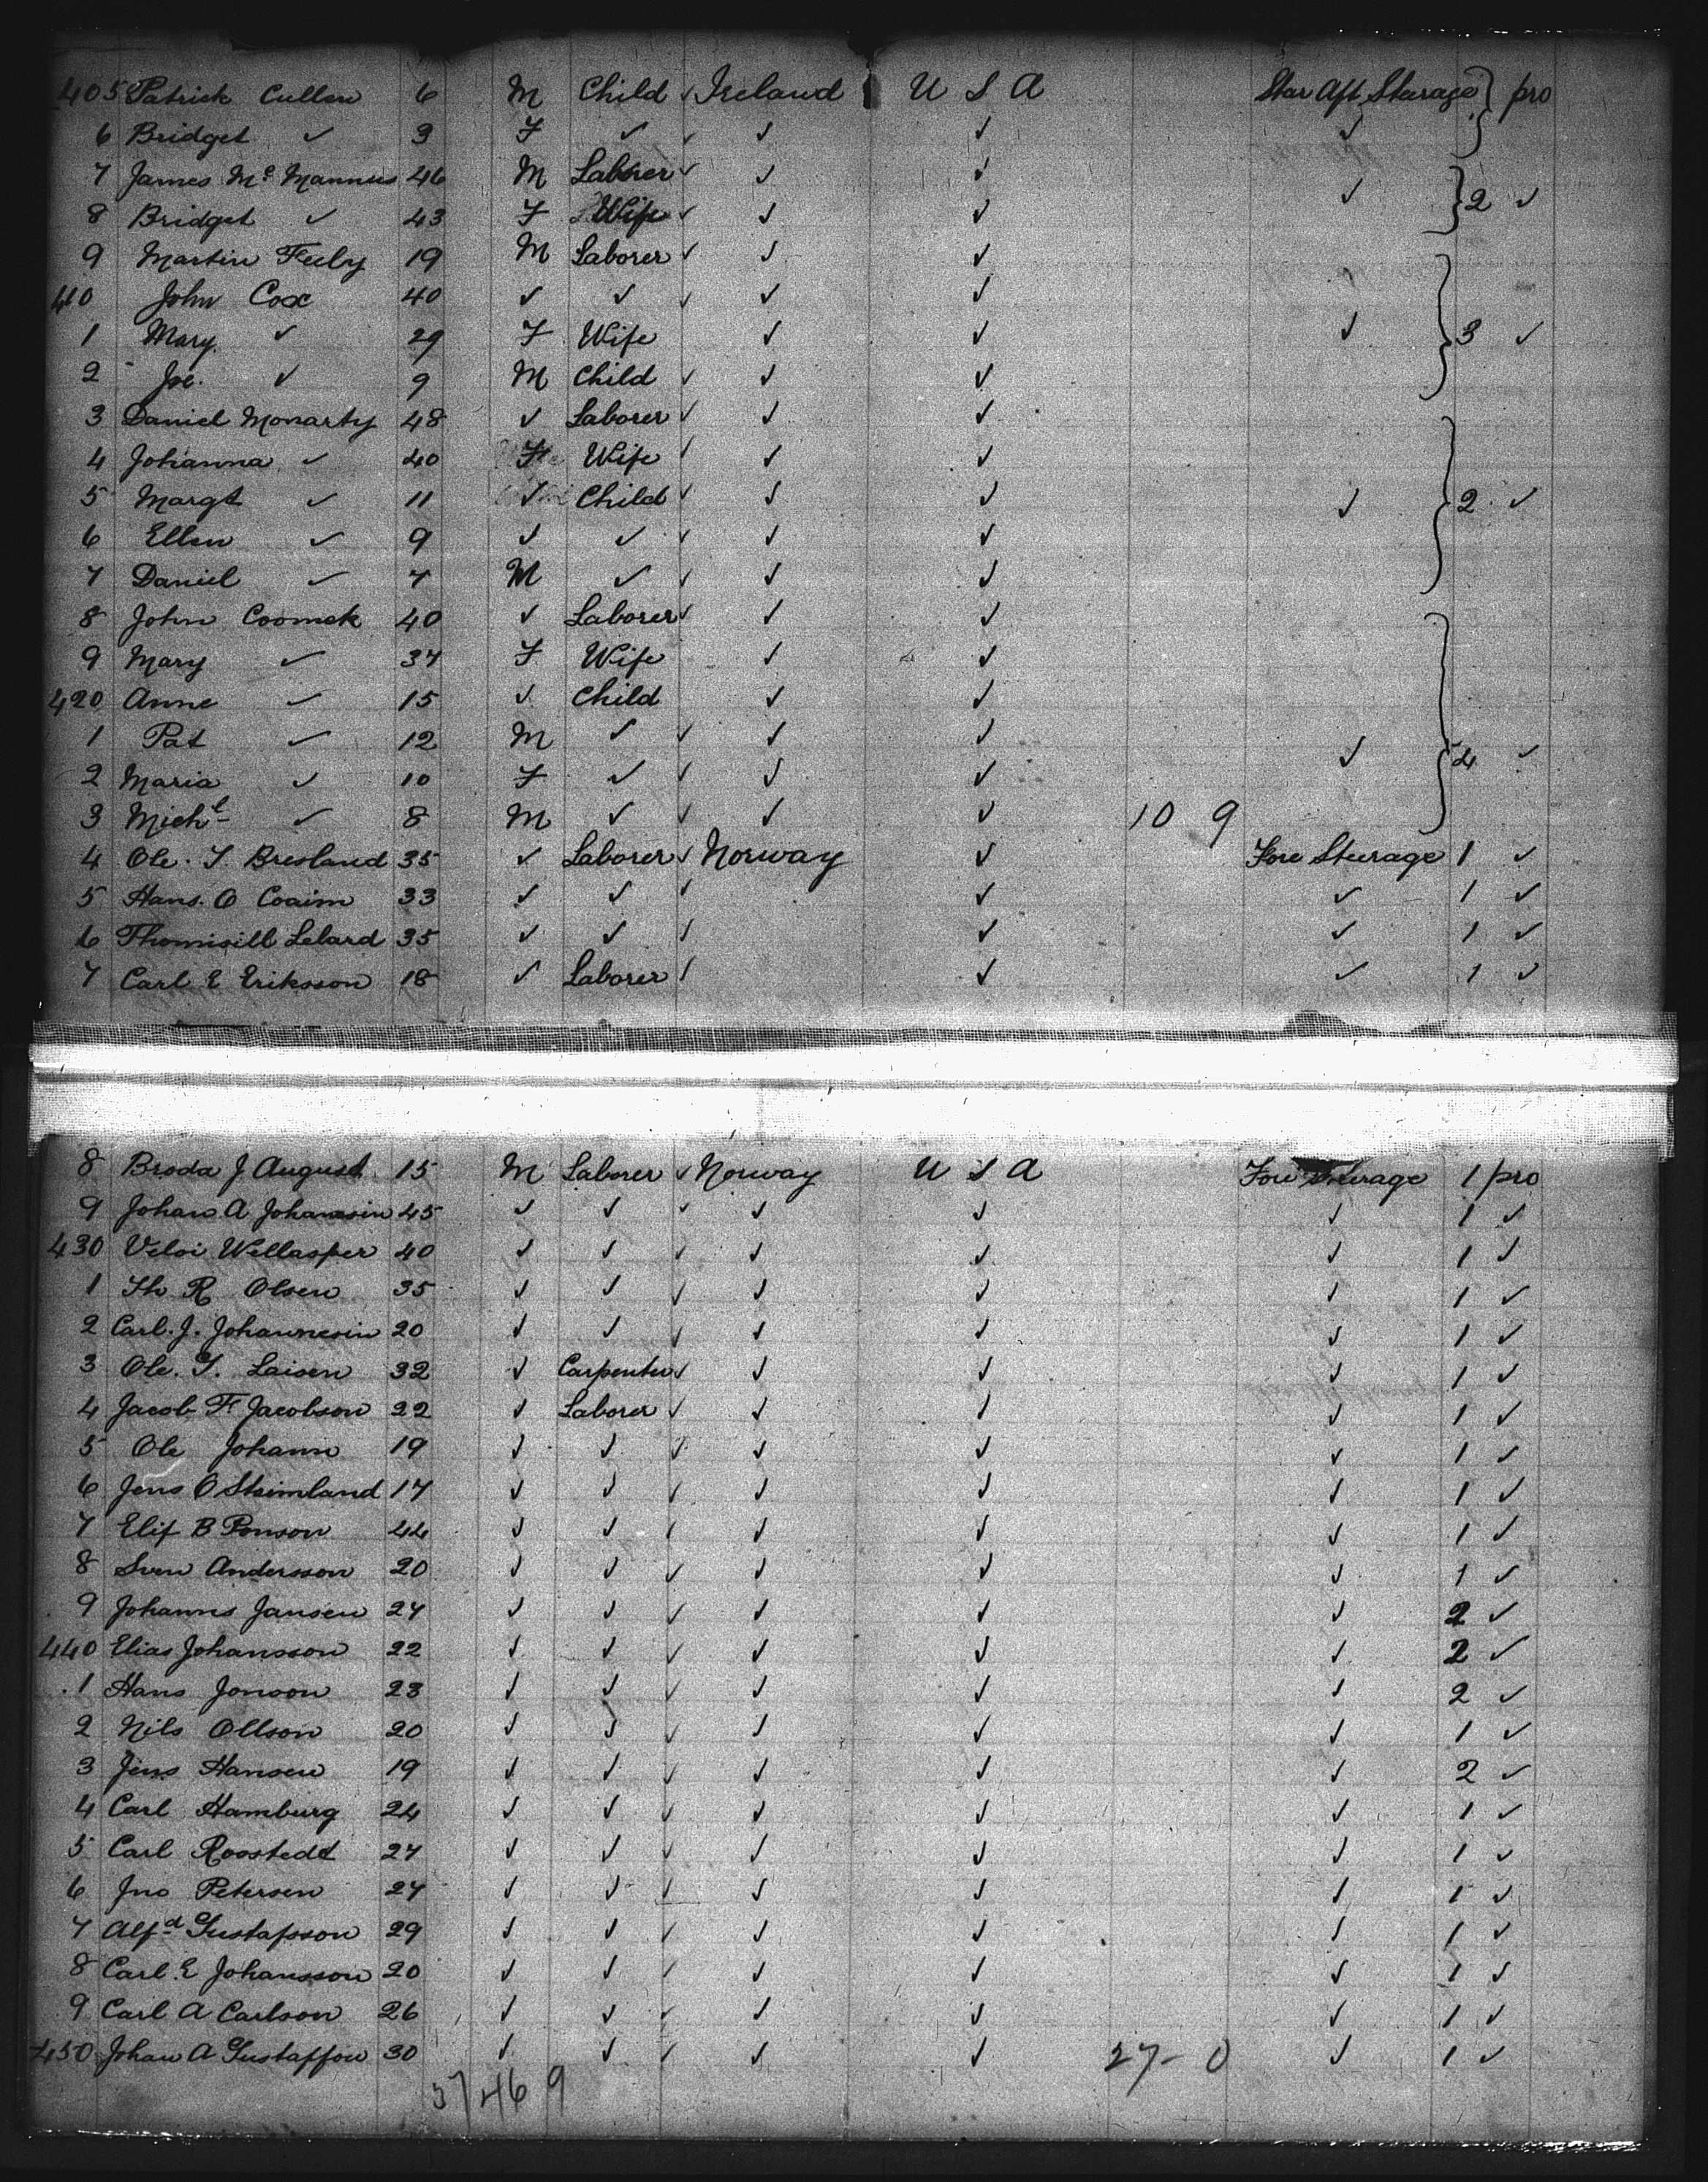 405 Patrick Cullen 6 M Child ✓ Ireland U S A Star Aft Steerage } pro
6 Bridget ✓ 3 F ✓ ✓ ✓ ✓ ✓
7 James Mc Mannus 46 M Laborer ✓ ✓ ✓ ✓ } 2 ✓
8 Bridget ✓ 43 F Wife ✓ ✓ ✓
9 Martin Feely 19 M Laborer ✓ ✓ ✓
410 John Cox 40 ✓ ✓ ✓ ✓ ✓
1 Mary ✓ 29 F Wife ✓ ✓ ✓ } 3 ✓
2 Joe. ✓ 9 M Child ✓ ✓ ✓
3 Daniel Monarty 48 ✓ Laborer ✓ ✓ ✓
4 Johanna ✓ 40 F Wife ✓ ✓ ✓
5 Margt ✓ 11 ✓ Child ✓ ✓ ✓ ✓ } 2 ✓
6 Ellen ✓ 9 ✓ ✓ ✓ ✓ ✓
7 Daniel ✓ 7 M ✓ ✓ ✓ ✓
8 John Coomek 40 ✓ Laborer ✓ ✓ ✓
9 Mary ✓ 37 F Wife ✓ ✓
420 Anne ✓ 15 ✓ Child ✓ ✓
1 Pat ✓ 12 M ✓ ✓ ✓ ✓ ✓ } 4 ✓
2 Maria ✓ 10 F ✓ ✓ ✓ ✓
3 Michl ✓ 8 M ✓ ✓ ✓ ✓ 10 9
4 Ole. T. Bresland 35 ✓ Laborer ✓ Norway ✓ Fore Steerage 1 ✓
5 Hans. O Coaim 33 ✓ ✓ ✓ ✓ ✓ 1 ✓
6 Lelard 35 ✓ ✓ ✓ ✓ ✓ 1 ✓
7 Carl E Eriksson 18 ✓ Laborer ✓ ✓ ✓ 1 ✓
8 Broda J August 15 M Laborer ✓ Norway U S A Fore Steerage 1 pro
9 Johan A Johansin 45 ✓ ✓ ✓ ✓ ✓ ✓ 1 ✓
430 Veloi Wellasper 40 ✓ ✓ ✓ ✓ ✓ ✓ 1 ✓
1 Th R Olsen 35 ✓ ✓ ✓ ✓ ✓ ✓ 1 ✓
2 Carl. J. Johannesin 20 ✓ ✓ ✓ ✓ ✓ ✓ 1 ✓
3 Ole. T. Laisen 32 ✓ Carpenter ✓ ✓ ✓ ✓ 1 ✓
4 Jacob F Jacobson 22 ✓ Laborer ✓ ✓ ✓ ✓ 1 ✓
5 Ole Johann 19 ✓ ✓ ✓ ✓ ✓ ✓ 1 ✓
6 Jens O Steimland 17 ✓ ✓ ✓ ✓ ✓ ✓ 1 ✓
7 Elif B Ponson 44 ✓ ✓ ✓ ✓ ✓ ✓ 1 ✓
8 Sven Andersson 20 ✓ ✓ ✓ ✓ ✓ ✓ 1 ✓
9 Johanns Jansen 27 ✓ ✓ ✓ ✓ ✓ ✓ 2 ✓
440 Elias Johansson 22 ✓ ✓ ✓ ✓ ✓ ✓ 2 ✓
1 Hans Jonson 23 ✓ ✓ ✓ ✓ ✓ ✓ 2 ✓
2 Nils Ollson 20 ✓ ✓ ✓ ✓ ✓ ✓ 1 ✓
3 Jens Hansen 19 ✓ ✓ ✓ ✓ ✓ ✓ 2 ✓
4 Carl Hamburg 24 ✓ ✓ ✓ ✓ ✓ ✓ 1 ✓
5 Carl Roostedt 27 ✓ ✓ ✓ ✓ ✓ ✓ 1 ✓
6 Jno Petersen 27 ✓ ✓ ✓ ✓ ✓ ✓ 1 ✓
7 Alfd Gustafsson 29 ✓ ✓ ✓ ✓ ✓ ✓ 1 ✓
8 Carl E Johansson 20 ✓ ✓ ✓ ✓ ✓ ✓ 1 ✓
9 Carl A Carlson 26 ✓ ✓ ✓ ✓ ✓ ✓ 1 ✓
450 Johan A Gustaffon 30 ✓ ✓ ✓ ✓ ✓ 27-0 ✓ 1 ✓
37 46 9